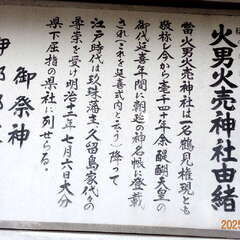 火男火売神社由緒
當火男火売神社は一名鶴見権現とも
敬称し今から壱千四十年余醍醐天皇の
御代延喜年間に朝廷の神名帳に登載
され(これを延喜式内と云う)降って
江戸時代は玖珠藩主久留島家代々の
尊崇を受け明治六年七月六日大分
県下屈指の県社に列せらる。
御祭神
伊
2025